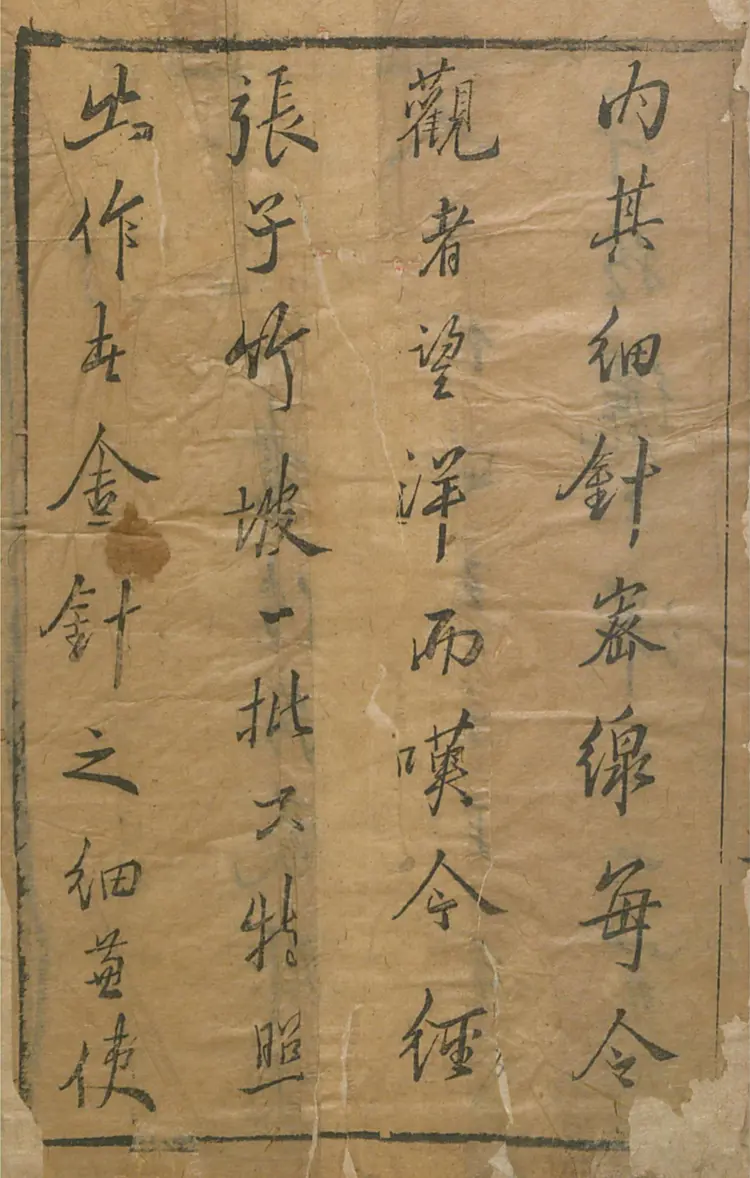 內其細針密線每令
觀者望洋而嘆今經
張子竹坡一批不特照
出作者金針之細兼使